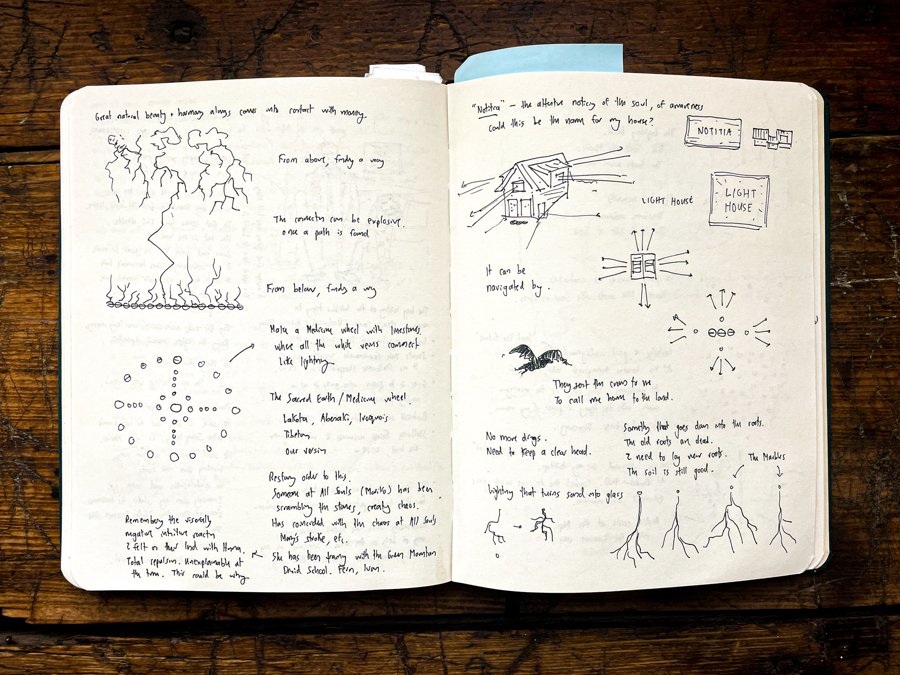 Great natural beauty + harmony always comes into contact with money.
From above, finding a way
The connection can be explosive
once a path is found
From below, finding a way
Make a Medicine wheel with limestones.
where all the white veins connect
like lightning
The Sacred Earth / Medicine wheel.
Lakota, Abenaki, Iroquois
Tibetan
Our version
Restoring order to this.
Someone at All Souls (Moriko) has been
scrambling the stones, creating chaos.
Has coincided with the chaos at All Souls
Mary's stroke, etc.
She has been training with the Green Mountain
Druid School. Fern, Ivan.
Remembering the viscerally
negative intuitive reaction
I felt on their land with
Total repulsion. Unexplainable at
the time. This could be why.
"Notitia" – the attentive noticing of the soul, of awareness
Could this be the name for my house?
NOTITIA
LIGHT HOUSE
LIGHT
HOUSE
It can be
navigated by.
They sent the crows to me
To call me home to the land.
No more drugs.
Need to keep a clear head.
Something that goes down into the roots.
The old roots are dead.
I need to lay new roots.
The soil is still good.
The Marbles
Lightning that turns sand into glass